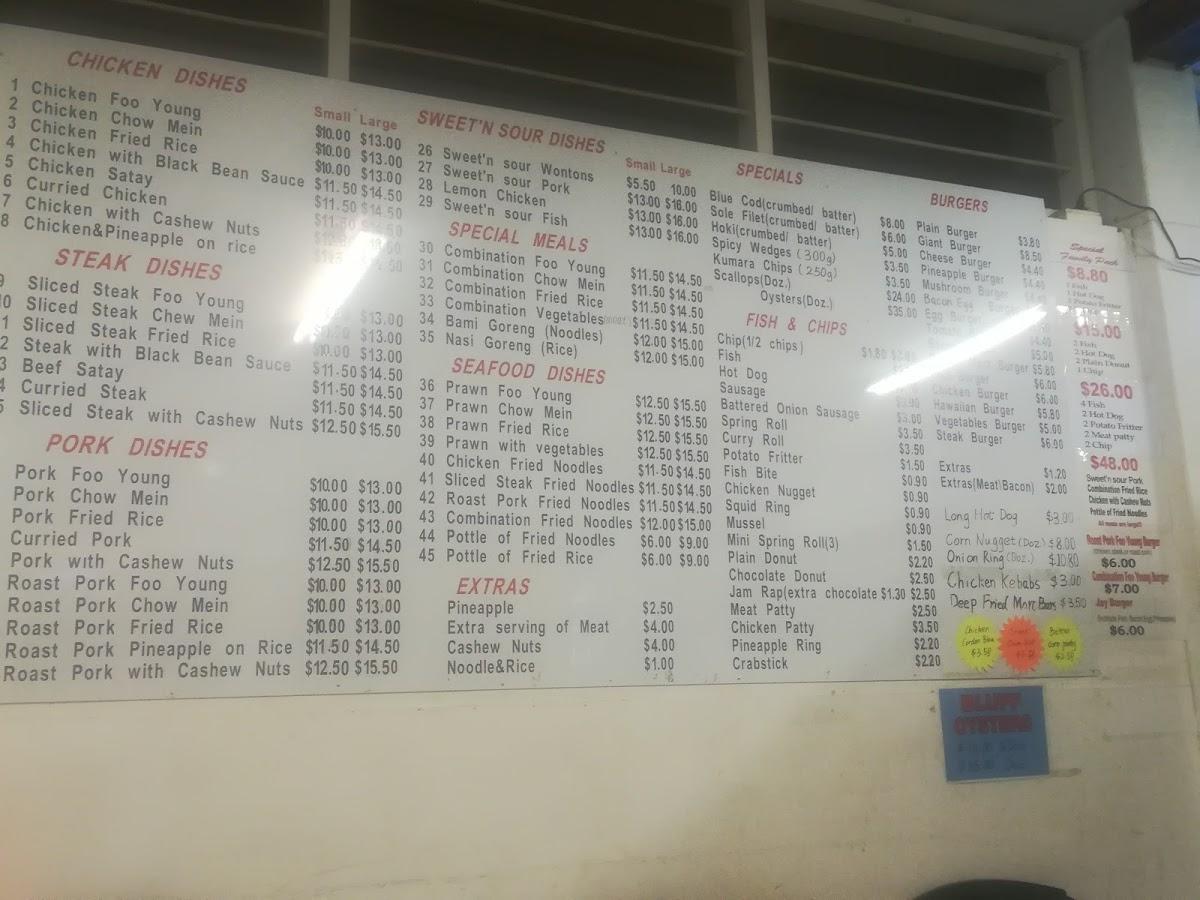 CHICKEN DISHES
Small Large
1 Chicken Foo Young $10.00 $13.00
2 Chicken Chow Mein $10.00 $13.00
3 Chicken Fried Rice $10.00 $13.00
4 Chicken with Black Bean Sauce $11.50 $14.50
5 Chicken Satay $11.50 $14.50
6 Curried Chicken
7 Chicken with Cashew Nuts
8 Chicken&Pineapple on rice
STEAK DISHES
Sliced Steak Foo Young $13.00
Sliced Steak Chew Mein $13.00
Sliced Steak Fried Rice $10.00 $13.00
Steak with Black Bean Sauce $11.50 $14.50
Beef Satay $11.50 $14.50
Curried Steak $11.50 $14.50
Sliced Steak with Cashew Nuts $12.50 $15.50
PORK DISHES
Pork Foo Young $10.00 $13.00
Pork Chow Mein $10.00 $13.00
Pork Fried Rice $10.00 $13.00
Curried Pork $11.50 $14.50
Pork with Cashew Nuts $12.50 $15.50
Roast Pork Foo Young $10.00 $13.00
Roast Pork Chow Mein $10.00 $13.00
Roast Pork Fried Rice $10.00 $13.00
Roast Pork Pineapple on Rice $11.50 $14.50
Roast Pork with Cashew Nuts $12.50 $15.50
SWEET'N SOUR DISHES
Small Large
26 Sweet'n sour Wontons $5.50 10.00
27 Sweet'n sour Pork $13.00 $16.00
28 Lemon Chicken $13.00 $16.00
29 Sweet'n sour Fish $13.00 $16.00
SPECIAL MEALS
30 Combination Foo Young $11.50 $14.50
31 Combination Chow Mein $11.50 $14.50
32 Combination Fried Rice $11.50 $14.50
33 Combination Vegetables $11.50 $14.50
34 Bami Goreng (Noodles) $12.00 $15.00
35 Nasi Goreng (Rice) $12.00 $15.00
SEAFOOD DISHES
36 Prawn Foo Young $12.50 $15.50
37 Prawn Chow Mein $12.50 $15.50
38 Prawn Fried Rice $12.50 $15.50
39 Prawn with vegetables $12.50 $15.50
40 Chicken Fried Noodles $11.50 $14.50
41 Sliced Steak Fried Noodles $11.50 $14.50
42 Roast Pork Fried Noodles $11.50 $14.50
43 Combination Fried Noodles $12.00 $15.00
44 Pottle of Fried Noodles $6.00 $9.00
45 Pottle of Fried Rice $6.00 $9.00
EXTRAS
Pineapple $2.50
Extra serving of Meat $4.00
Cashew Nuts $4.00
Noodle&Rice $1.00
SPECIALS
Blue Cod(crumbed/ batter) $8.00
Sole Filet(crumbed/ batter) $6.00
Hoki(crumbed/ batter) $5.00
Spicy Wedges (300g) $3.50
Kumara Chips (250g) $3.50
Scallops(Doz.) $24.00
Oysters(Doz.) $35.00
FISH & CHIPS
Chip(1/2 chips) $1.80
Fish
Hot Dog
Sausage
Battered Onion Sausage $3.00
Spring Roll $3.50
Curry Roll $3.50
Potato Fritter $1.50
Fish Bite $0.90
Chicken Nugget $0.90
Squid Ring $0.90
Mussel $0.90
Mini Spring Roll(3) $1.50
Plain Donut $2.20
Chocolate Donut $2.50
Jam Rap(extra chocolate $1.30 $2.50
Meat Patty $2.50
Chicken Patty $3.50
Pineapple Ring $2.20
Crabstick $2.20
BURGERS
Plain Burger $3.80
Giant Burger $8.50
Cheese Burger $4.40
Pineapple Burger $4.40
Mushroom Burger
Bacon Egg Burger
Egg Burger
$4.40
$5.00
Burger $5.80
Burger $6.00
Chicken Burger $6.00
Hawaiian Burger $5.80
Vegetables Burger $5.00
Steak Burger $6.00
Extras $1.20
Extras(Meat\Bacon) $2.00
Long Hot Dog $3.00
Corn Nugget (Doz.) $8.00
Onion Ring (Doz.) $10.80
Chicken Kebabs $3.00
Deep Fried Mars Bars $3.50
Chicken
Cordon Bleu
$3.50
Special
Family Pack
$8.80
1 Fish
1 Hot Dog
1 Potato Fritter
$15.00
2 Fish
2 Hot Dog
2 Plain Donut
1 Chip
$26.00
4 Fish
2 Hot Dog
2 Potato Fritter
2 Meat patty
2 Chip
$48.00
Sweet'n sour Pork
Combination Fried Rice
Chicken with Cashew Nuts
Pottle of Fried Noodles
Roast Pork Foo Young Burger
$6.00
Combination Foo Young Burger
$7.00
Burger
$6.00
BLUFF
OYSTERS